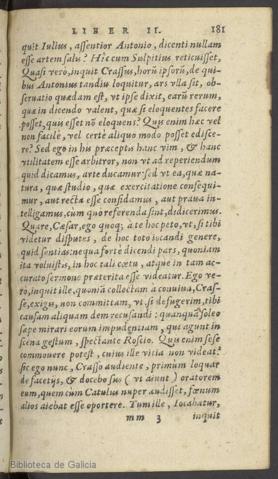 LIBER II. 181
quit Iulius, assentior Antonio, dicenti nullam
esse artem salis? Hic cum Sulpitius reticuisset,
Quasi vero, inquit Crassus, horũ ipsorũ, de qui-
bus Antonius tandiu loquitur, ars vlla sit, ob-
seruatio quædam est, vt ipse dixit, earũ rerum,
quæ in dicendo valent, quæ si eloquentes facere
posset, quis esset nõ eloquens? Quis enim hæc vel
non facile, vel certè aliquo modo posset edisce-
re? Sed ego in his præceptis hanc vim, & hanc
vtilitatem esse arbitror, non vt ad reperiendum
quid dicamus, arte ducamur: sed vt ea, quæ na-
tura, quæ studio, quæ exercitatione consequi-
mur, aut recta esse confidamus, aut praua in-
telligamus, cum quo referenda sint, didicerimus.
Quare, Cæsar, ego quoq; a te hoc peto, vt, si tibi
videtur disputes, de hoc toto iocandi genere,
quid sentias: ne qua forte dicendi pars, quoniam
ita voluistis, in hoc tali cœtu, atque in tam ac-
curato sermone præterita esse videatur. Ego ve-
ro, inquit ille, quoniã collectam a conuiua, Cras-
se, exigis, non committam, vt, si defugerim, tibi
causam aliquam dem recusandi: quanquã soleo
sæpe mirari eorum impudentiam, qui agunt in
scena gestum, spectante Roscio. Quis enim sese
commouere potest, cuius ille vicia non videat?
sic ego nunc, Crasso audiente, primum loquar
de facetijs, & docebo sus (vt aiunt) oratorem
eum, quem cum Catulus nuper audisset, fœnum
alios aiebat esse oportere. Tum ille, Iocabatur,
mm 3 inquit
Biblioteca de Galicia